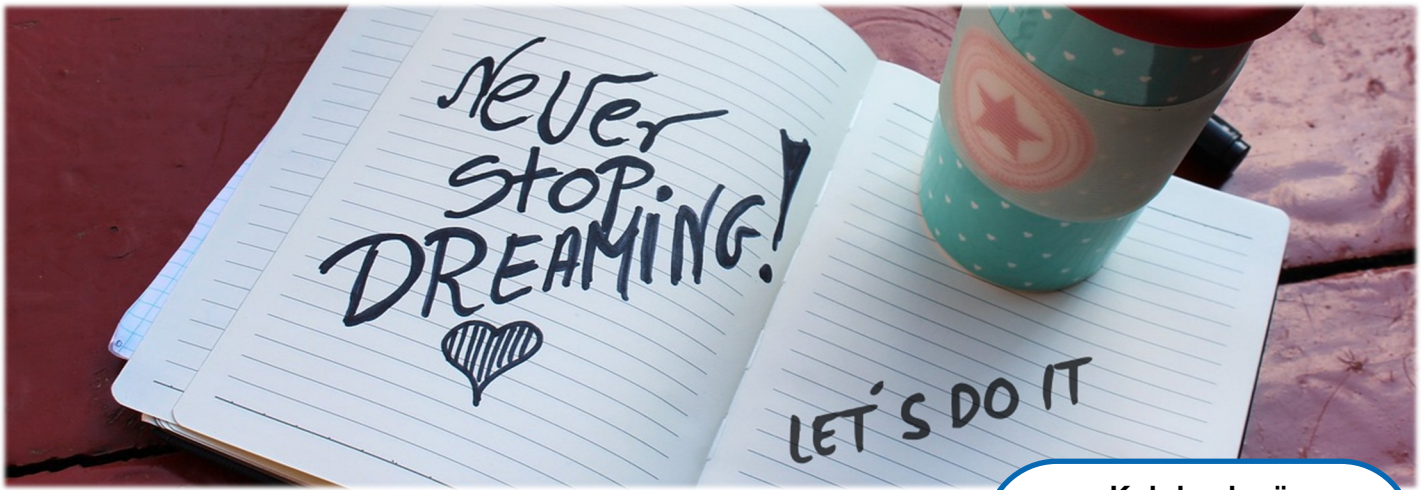 Never
stop
DREAMiNG!
LET'S DO IT